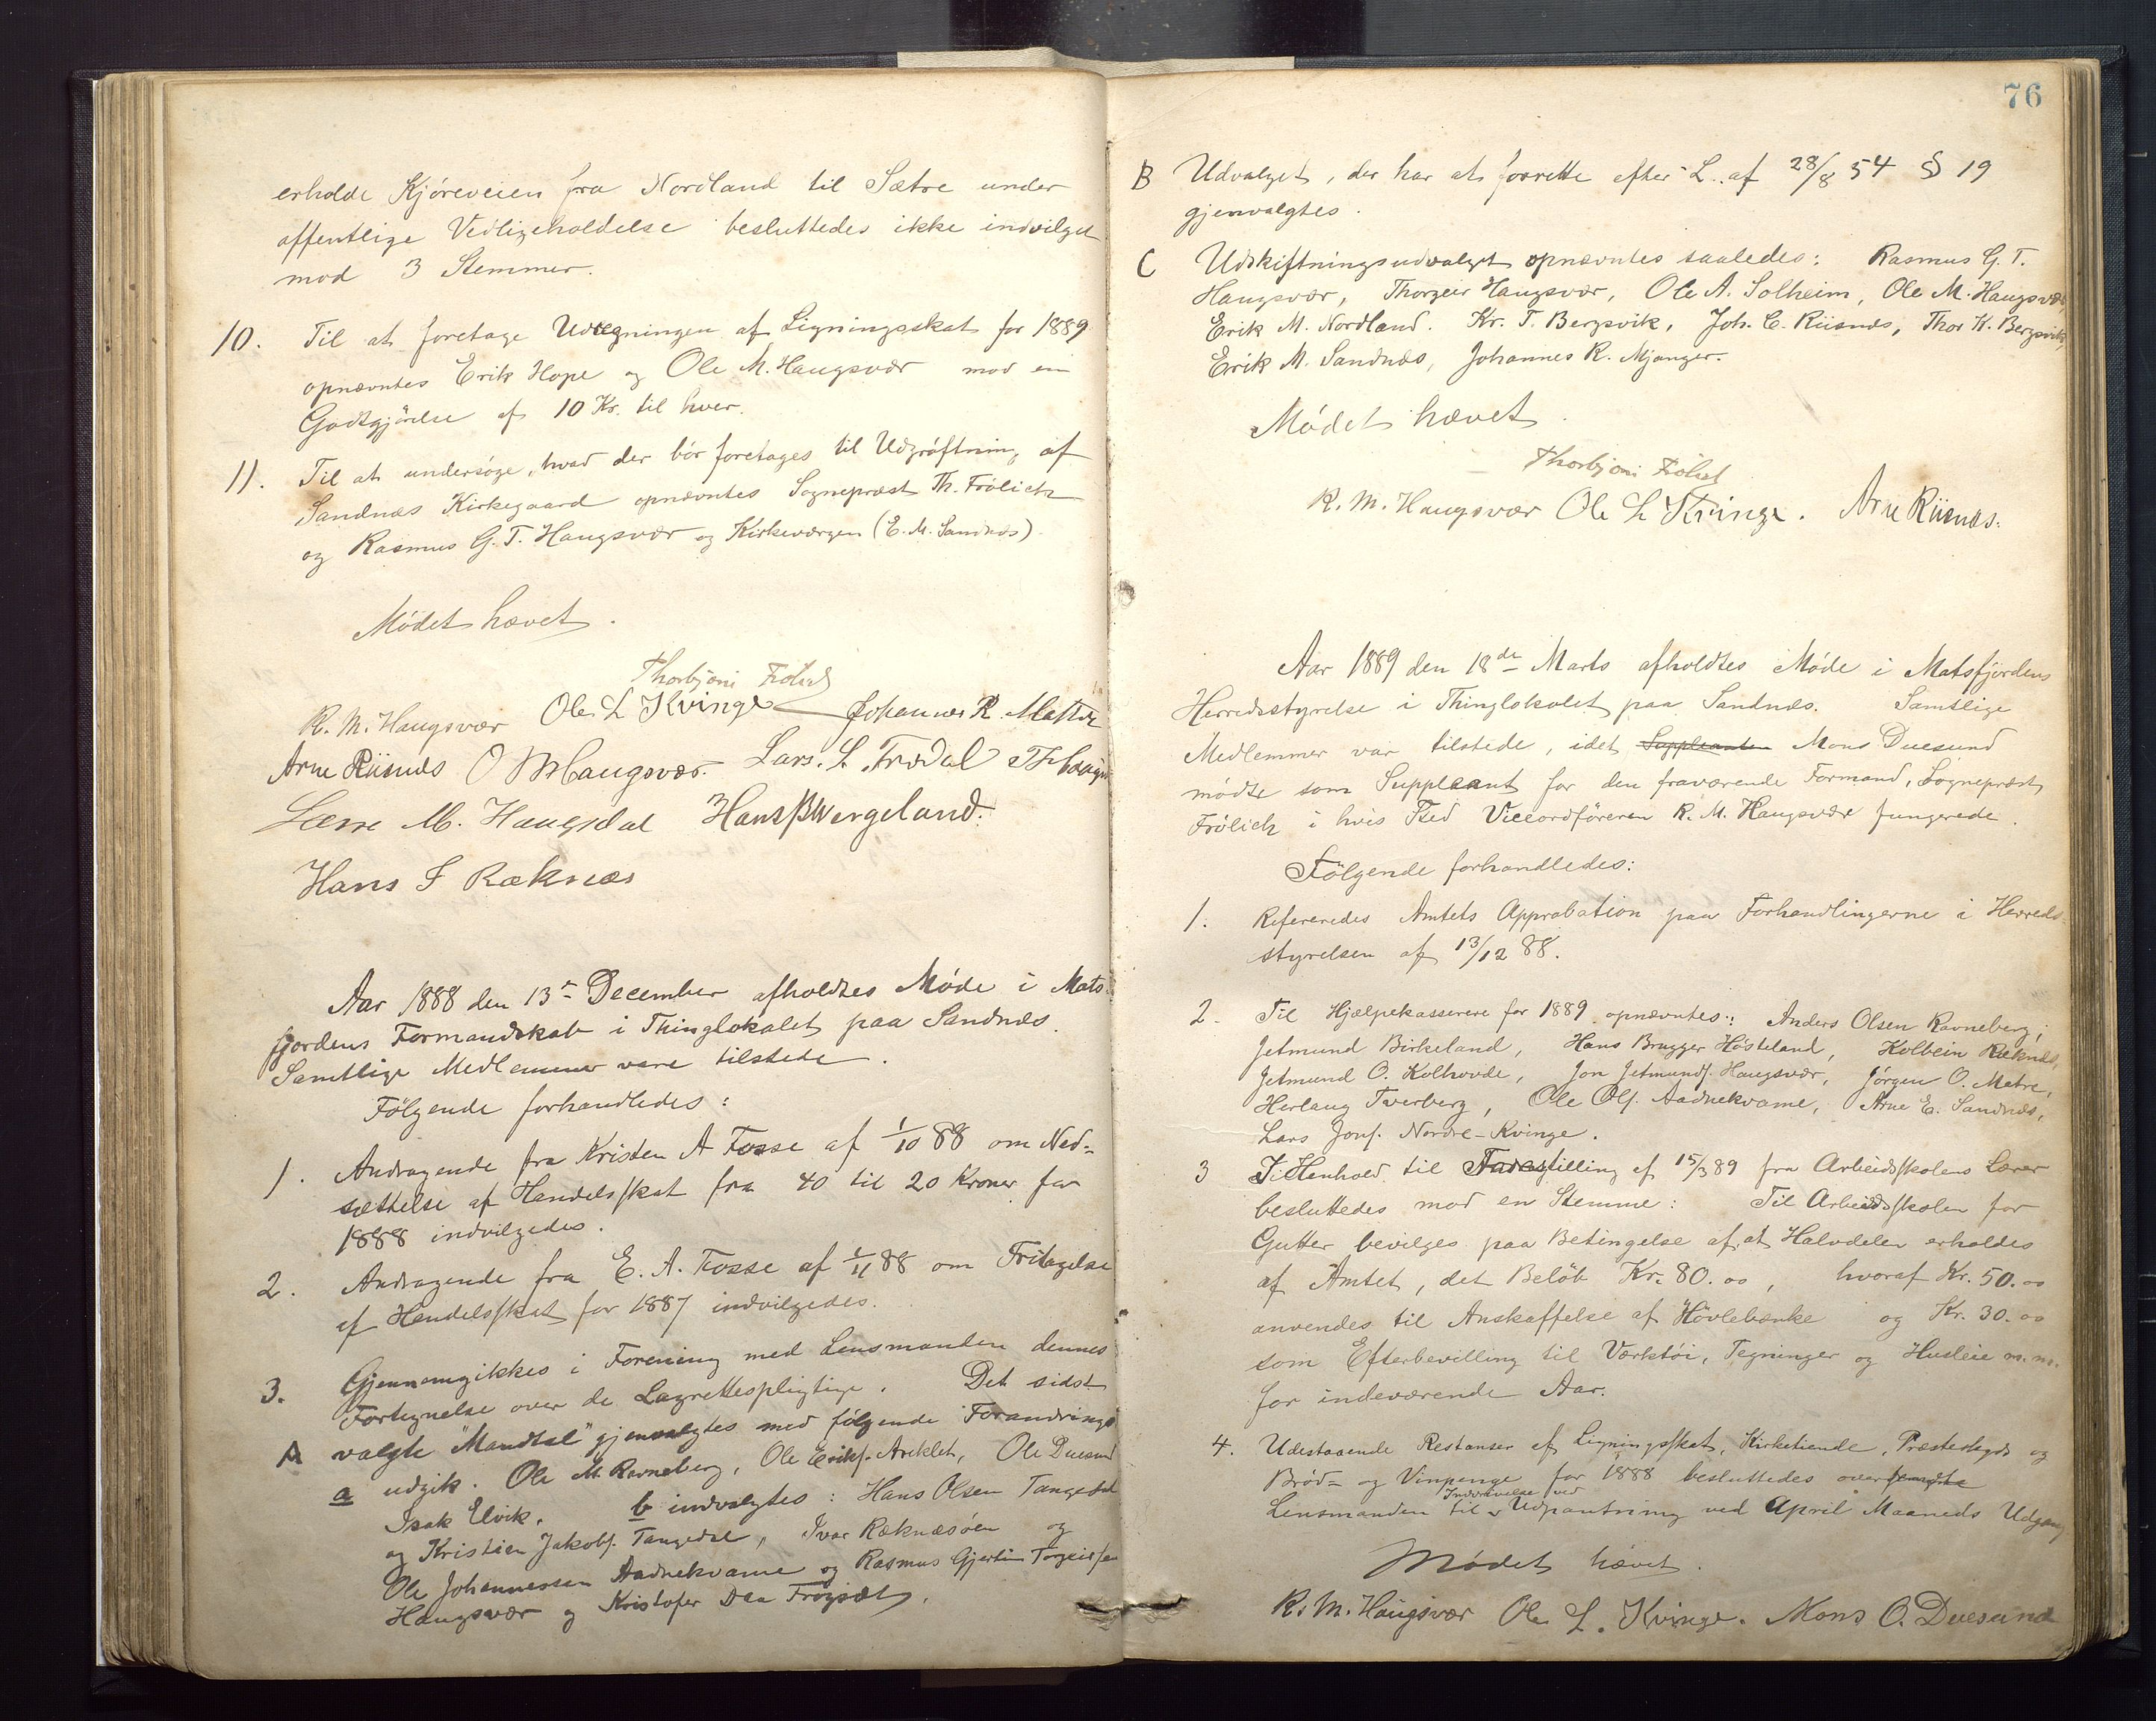 erholde Kjöreveien fra Nordland til Sætre under
offentlige Vedligeholdelse besluttedes ikke indvilget
mod 3 Stemmer.
10. Til at foretage Udregningen af Ligningsskat for 1889
opnævntes Erik Hope og Ole M. Haugsvær mod en
Godtgjörelse af 10 Kr. til hver.
11. Til at undersöge, hvad der bör foretages til Udgröftning af
Sandnæs Kirkegaard opnævntes Sognepræst Th. Frölich
og Rasmus G. T. Haugsvær og Kirkeværgen (E. M. Sandnæs)
Mödet hævet.
Thorbjörn Frölich
R. M. Haugsvær Ole L Kvinge Johannes R. Matter
Arne Riisnæs O M Haugsvær. Lars. L. Trædal
Lasse M. Haugsdal Hans B Wergeland.
Hans J Ræknæs
Aar 1888 den 13de December afholdtes Möde i Mats-
fjordens Formandskab i Thinglokalet paa Sandnæs.
Samtlige Medlemmer vare tilstede.
Fölgende forhandledes:
1. Andragende fra Kristen A Fosse af 1/10 88 om Ned-
sættelse af Handelsskat fra 40 til 20 Kroner for
1888 indvilgedes.
2. Andragende fra E. A. Fosse af 1/11 88 om Fritagelse
af Handelsskat for 1887 indvilgedes.
3. Gjennemgikkes i Forening med Lensmanden dennes
Fortegnelse over de Lagrettespligtige. Det sidst
A valgte "Mandtal" gjenvalgtes med fölgende Forandringe
a udgik. Ole M. Ravneberg, Ole Eriks. Areklet, Ole Duesund
Isak Elvik. b indvalgtes: Hans Olsen Tangedal
og Kristian Jakobs. Tangedal, Ivar Ræknæsöen og
Ole Johannessen Aadnekvame og Rasmus Gjertin Torgeirsen
Haugsvær og Kristofer Daa Fröyset.
76
B Udvalget, der har at forrette efter L. af 28/8 54 § 19
gjenvalgtes.
C Udskiftningsudvalget opnævntes saaledes: Rasmus G. T.
Haugsvær, Thorgeir Haugsvær, Ole A. Solheim, Ole M. Haugsvær,
Erik M. Nordland. Kr. T. Bergsvik, Joh. C. Riisnæs, Thor K. Bergsvik,
Erik M. Sandnæs, Johannes R. Mjanger.
Mödet hævet.
Thorbjörn Frölich
R. M. Haugsvær Ole L Kvinge. Arne Riisnæs.
Aar 1889 den 18de Marts afholdtes Möde i Matsfjordens
Herredsstyrelse i Thinglokalet paa Sandnæs. Samtlige
Medlemmer var tilstede, idet Suppleanten Mons Duesund
mödte som Suppleant for den fraværende Formand, Sognepræst
Frölich i hvis Sted Viceordföreren R. M. Haugsvær fungerede.
Fölgende forhandledes:
1. Refereredes Amtets Approbation paa Forhandlingerne i Herreds-
styrelsen af 13/12 88.
2. Til Hjælpekasserere for 1889 opnævntes: Anders Olsen Ravneberg,
Jetmund Birkeland, Hans Brugger Hösteland, Kolbein Ræknæs,
Jetmund O. Kolhovde, Jon Jetmunds. Haugsvær, Jörgen O. Matre,
Herlaug Tverberg, Ole Ols. Aadnekvame, Arne E. Sandnæs,
Lars Jons. Nordre-Kvinge.
3 I Henhold til Forestilling af 15/3 89 fra Arbeidsskolens Lærer
besluttedes mod en Stemme: Til Arbeidsskolen for
Gutter bevilges paa Betingelse af, at Halvdelen erholdes
af Amtet, det Belöb Kr. 80.00, hvoraf Kr. 50.00
anvendes til Anskaffelse af Hövlebænke og Kr. 30.00
som Efterbevilling til Værktöi, Tegninger og Husleie m. m.
for indeværende Aar.
4. Udestaaende Restanser af Ligningsskat, Kirketiende, Præstertugd og
Bröd- og Vinpenge for 1888 besluttedes oversendte
Indkrævelse ved
Lensmanden til Udpantning ved April Maaneds Udgang
Mödet hævet.
R. M. Haugsvær Ole L. Kvinge. Mons O. Duesund